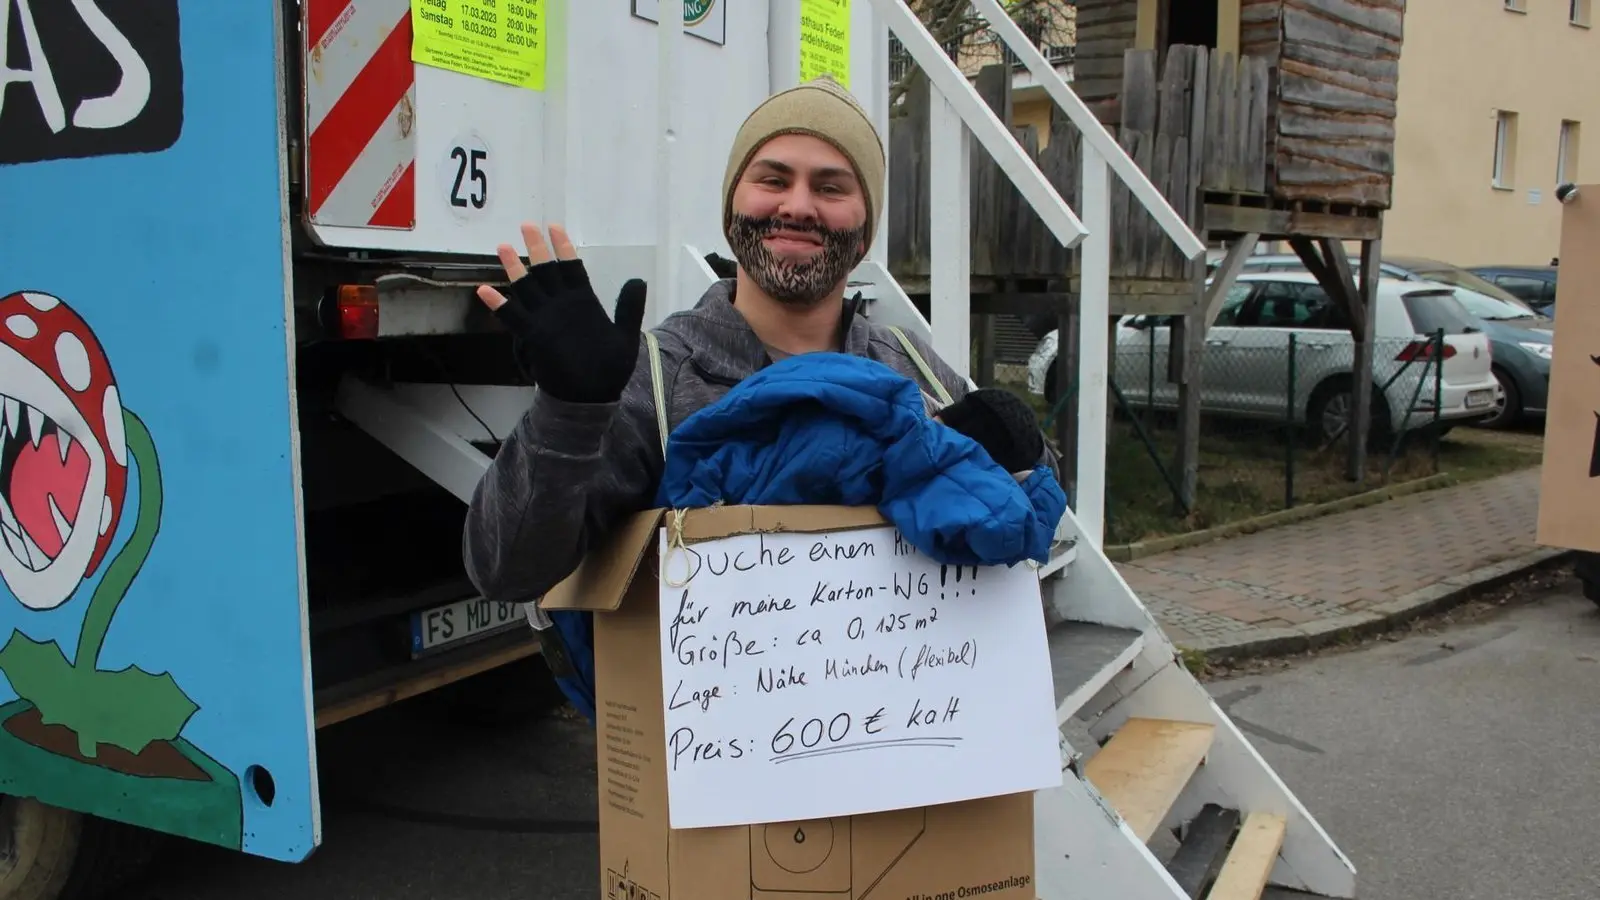 AS
Freitag 17.03.2023 und 18:00 Uhr
Samstag 20:00 Uhr
18.03.2023 20:00 Uhr
25
ING
Gasthaus Federl
Gundelshausen
FS MD 87
Suche einen
für meine Karton-WG!!!
Größe: ca 0,125 m²
Lage: Nähe München (flexibel)
Preis: 600 € kalt
All in one Osmoseanlage